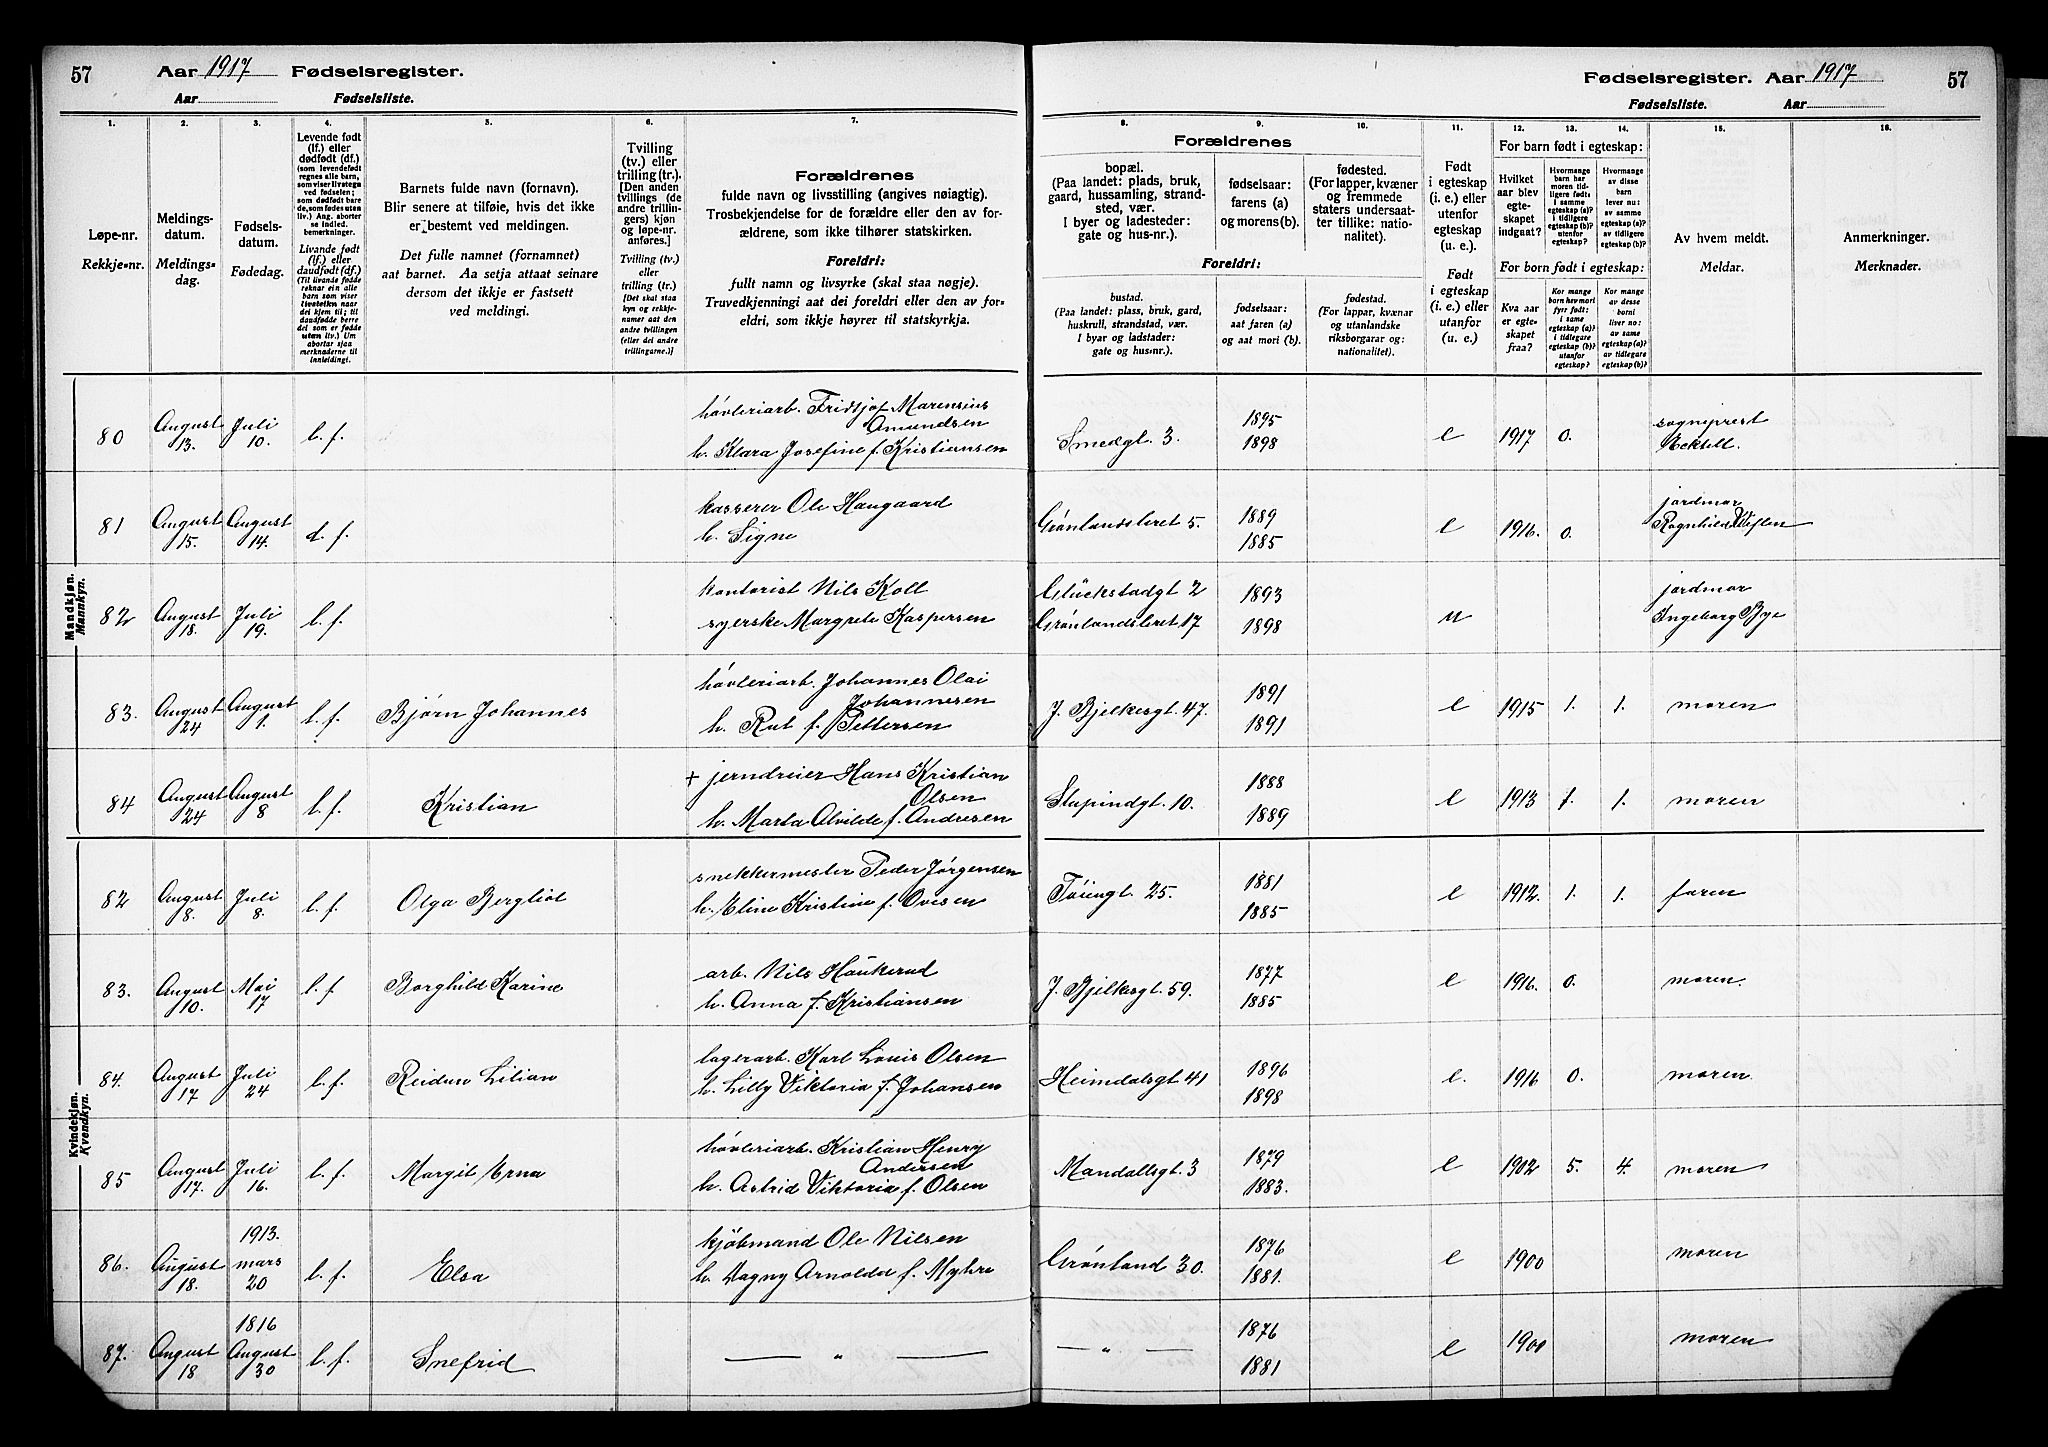 57 Aar 1917 Fødselsregister.
Aar Fødselsliste.
Fødselsregister. Aar 1917 57
Fødselsliste. Aar
1. 2. 3. 4. 5. 6. 7. 8. 9. 10. 11. 12. 13. 14. 15. 16.
Løpe-nr.
Rekkje-nr.
Meldings-
datum.
Meldings-
dag.
Fødsels-
datum.
Fødedag.
Levende født
(lf.) eller
dødfødt (df.)
(som levendefødt
regnes alle barn,
som viser livstegn
ved fødselen;
som dødfødt bare
de, som fødes uten
liv.) Ang. aborter
se indled.
bemerkninger.
Livande født
(lf.) eller
daudfødt (df.)
(Til livande fødde
reknar ein alle
barn som viser
livsteikn naar
dei kjem til; til
daudfødde berre
dei som er fødde
utan liv.) Um
abortar sjaa
merknaderne til
innleiding.
Barnets fulde navn (fornavn).
Blir senere at tilføie, hvis det ikke
er bestemt ved meldingen.
Det fulle namnet (fornamnet)
aat barnet. Aa setja attaat seinare
dersom det ikkje er fastsett
ved meldingi.
Tvilling
(tv.) eller
trilling (tr.).
[Den anden
tvillings (de
andre trillin-
gers) kjøn
og løpe-nr.
anføres.]
Tvilling (tv.)
eller
trilling (tr.)
[Det skal staa
kyn og rekkje-
namer aat den
andre tvillingen
(eller dei andre
trillingarne.)]
Forældrenes
fulde navn og livsstilling (angives nøiagtig).
Trosbekjendelse for de forældre eller den av for-
ældrene, som ikke tilhører statskirken.
Foreldri:
fullt namn og livsyrke (skal staa nøgje).
Truvedkjenningi aat dei foreldri eller den av for-
eldri, som ikkje høyrer til statskyrkja.
Forældrenes
bopæl.
(Paa landet: plads, bruk,
gaard, hussamling, strand-
sted, vær.
I byer og ladesteder:
gate og hus-nr.).
fødselsaar:
farens (a)
og morens (b).
fødested.
(For lapper, kvæner
og fremmede
staters undersaat-
ter tillike: natio-
nalitet).
Foreldri:
bustad.
(Paa landet: plass, bruk, gard,
huskrull, strandstad, vær.
I byar og ladstader:
gate og hus-nr.).
fødselsaar:
aat faren (a)
og aat mori (b).
fødestad.
(For lappar, kvænar
og utanlandske
riksborgarar og:
nationalitet).
Født
i egteskap
(i. e.) eller
utenfor
egteskap
(u. e.)
Født
i egteskap
(i. e.) eller
utanfor
(u. e.)
For barn født i egteskap:
Hvilket
aar blev
egte-
skapet
indgaat?
Hvormange
barn har
moren tid-
ligere født:
i samme
egteskap (a)?
i tidligere
egteskap (b)?
utenfor
egteskap?
Hvormange
av disse
barn
lever nu:
av samme
egteskap (a)?
av tidligere
egteskap (b)?
For born født i egteskap:
Kva aar
er egte-
skapet
fraa?
Kor mange
barn hev mori
fyrr født:
i same
egteskap (a)?
i tidlegare
egteskap (b)?
utanfor
egteskap?
Kor mange
av desse
borni
liver no:
av same
egteskap (a)?
av tidlegare
egteskap (b)?
Av hvem meldt.
Meldar.
Anmerkninger.
Merknader.
Mandkjøn.
Mannkyn.
80 August 13. Juli 10. l. f. høvleriarb. Fridtjof Marensius
Amundsen
h. Klara Josefine f. Kristiansen Smedgt. 3. 1895 1898 e 1917 0. sogneprest
81 August 15. August 14. d. f. kasserer Ole Haugaard
h. Signe Grønlandsleret 5. 1889 1885 e 1916. 0. jordmor
Ragnhild
82 August 18. Juli 19. l. f. kontorist Nils Koll
syerske Margrete Kaspersen Glückstadgt 2
Grønlandsleret 17 1893 1898 u jordmor
Ingeborg Bye
83. August 24 August 1. l. f. Bjørn Johannes høvleriarb. Johannes Olai
Johannesen
h. Rut f. Pettersen J. Bjelkesgt. 47. 1891 1891 e 1915 1. 1. moren
84 August 24 August 8 l. f. Kristian + jerndreier Hans Kristian
Olsen
h. Marta Alvilde f. Andresen Stupindgt. 10. 1888 1889 e 1913 1. 1. moren
Kvindekjøn.
Kvendkyn.
82 August 8. Juli 8. l. f. Olga Bergliot snekkermester Peder Jørgensen
h. Eline Kristine f. Ovesen Tøiengt. 25. 1881 1885 e 1912. 1. 1. faren
83. August 10. Mai 17 l. f. Borghild Karine arb. Nils Haukerud
h. Anna f. Kristiansen J. Bjelkesgt. 59. 1877 1885 e 1916. 0. moren.
84. August 17 Juli 24 l. f. Reidun Lilian lagerarb. Karl Louis Olsen
h. Lilly Viktoria f. Johansen Heimdalsgt 41 1896 1898 e. 1916 0. moren.
85 August 17. Juli 16. l. f. Margit Erna høvleriarb. Kristian Henry
Andersen
h. Astrid Viktoria f. Olsen Mandallsgt. 3 1879 1883. e 1902 5. 4. moren
86. August 18. 1913. mars 20 l. f. Elsa kjøbmand Ole Nilsen
h. Dagny Arnolda f. Myhre Grønland 30. 1876 1881. e 1900 moren
87. August 18 1816 August 30 l. f. Snefrid — " — — " — 1876 1881 e 1900 moren